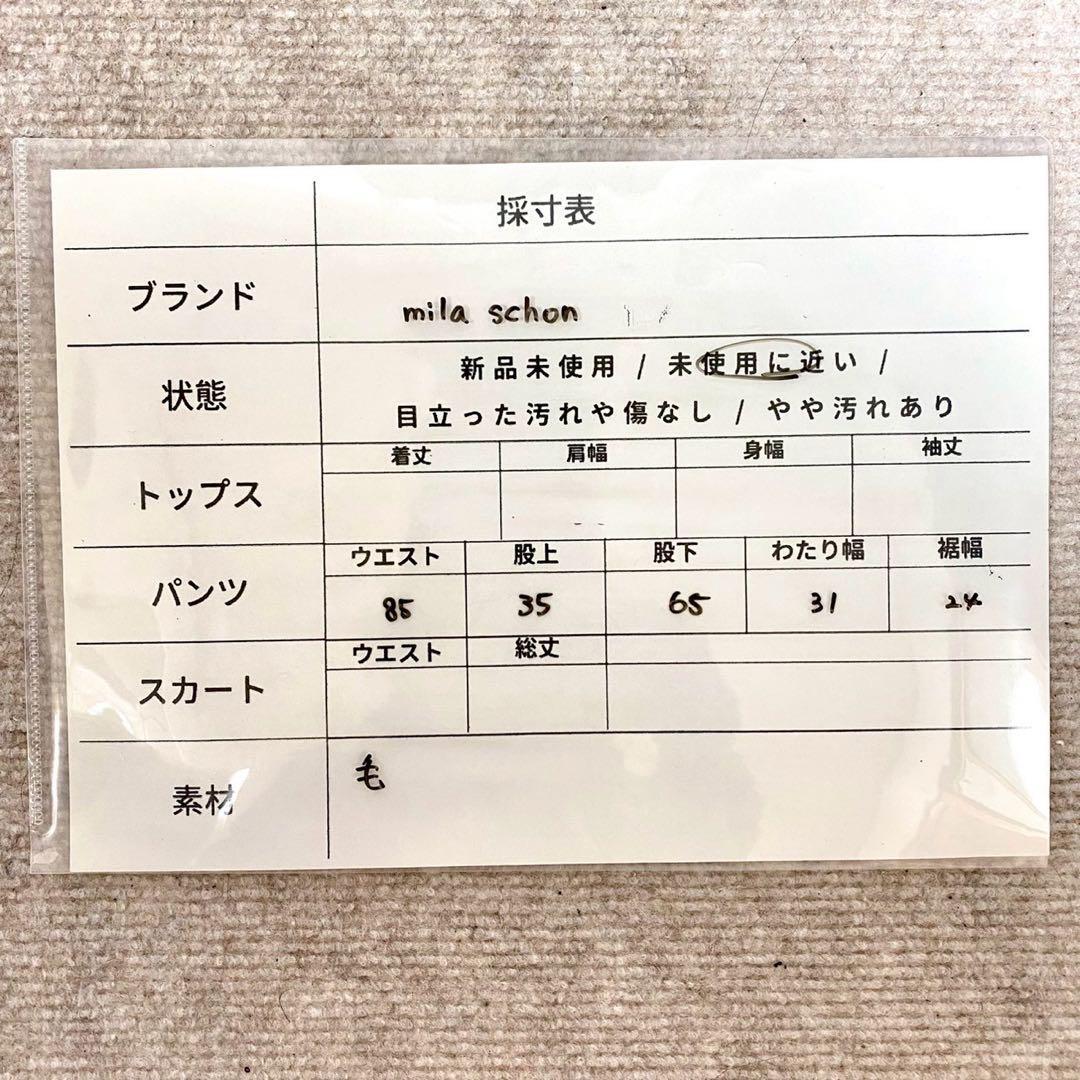 採寸表
ブランド mila schon
状態 新品未使用 / 未使用に近い /
目立った汚れや傷なし / やや汚れあり
トップス 着丈 肩幅 身幅 袖丈
パンツ ウエスト 股上 股下 わたり幅 裾幅
85 35 65 31 24
スカート ウエスト 総丈
素材 毛